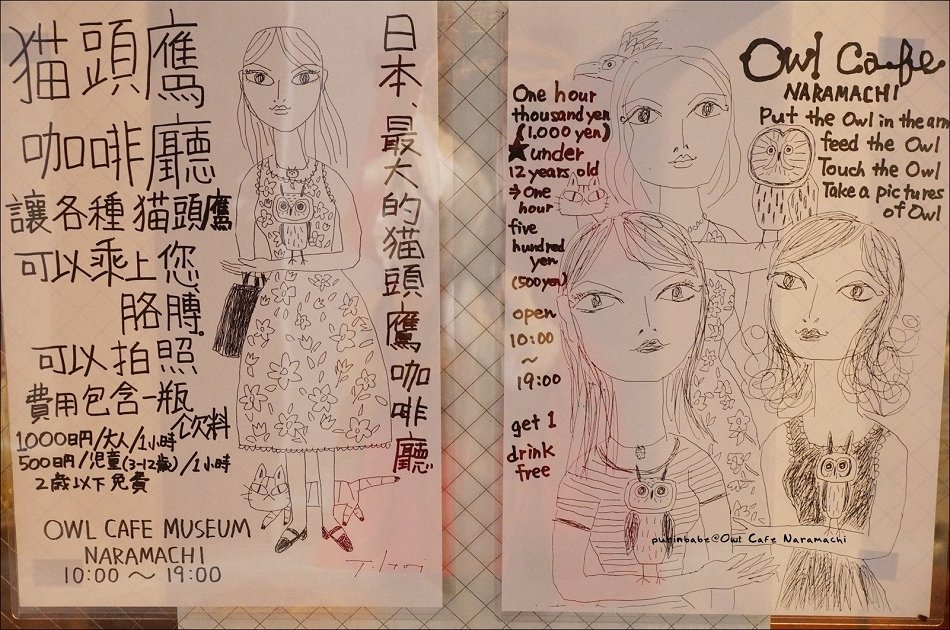 猫頭鷹
咖啡廳
讓各種猫頭鷹
可以乘上您、
胳膊。
可以拍照
費用包含一瓶
飲料
1000日円/大人/1小時
500日円/児童(3-12歳)/1小時
2歳以下免費
OWL CAFE MUSEUM
NARAMACHI
10:00～19:00
日本、最大的猫頭鷹咖啡廳
Owl Cafe
NARAMACHI
Put the Owl in the arm
feed the Owl
Touch the Owl
Take a pictures
of Owl
One hour
thousand yen
(1,000 yen)
★under
12 years old
⇒One
hour
five
hundred
yen
(500yen)
open
10:00
~
19:00
get 1
drink
free
purinbabe@Owl Cafe Naramachi